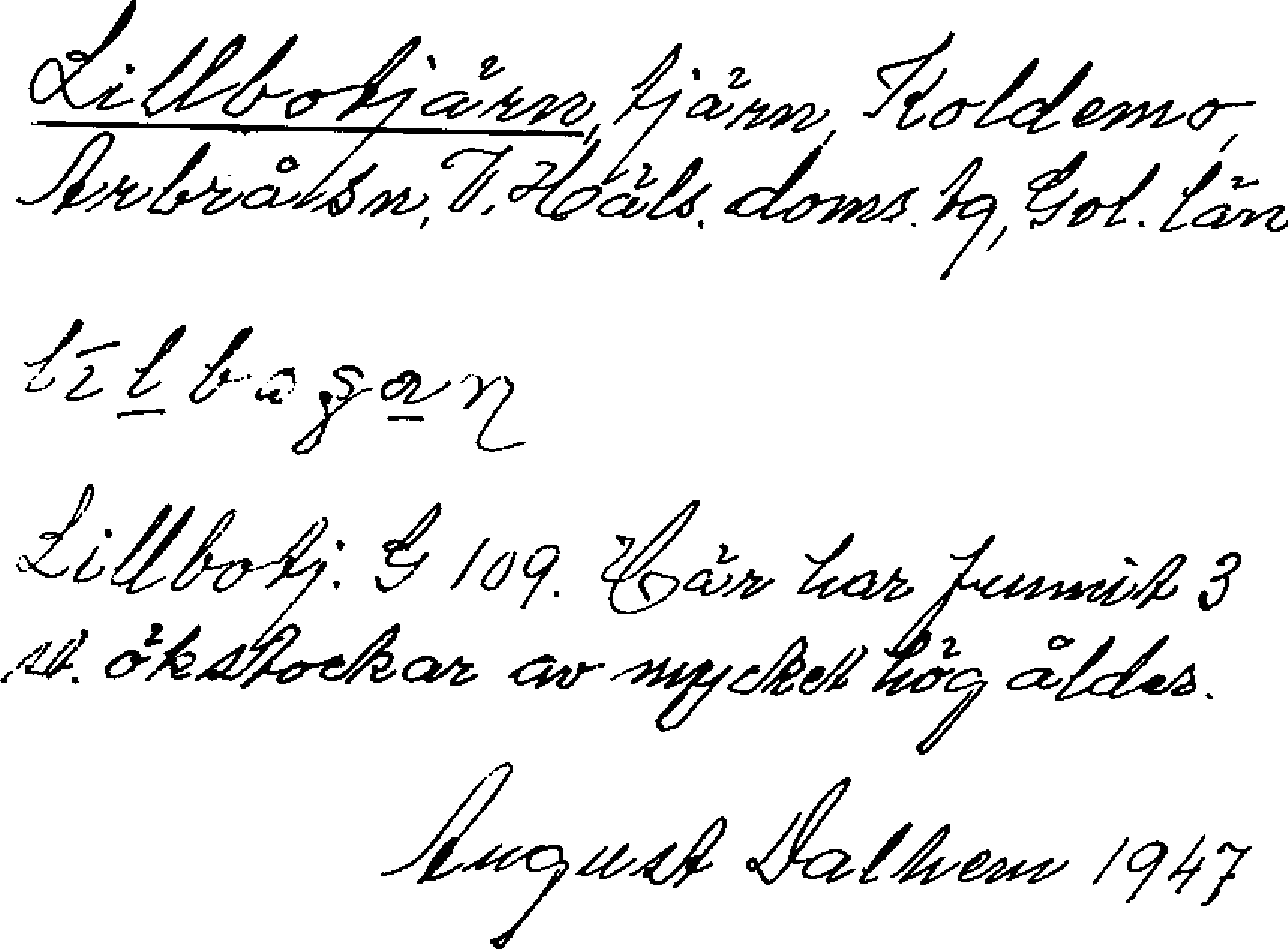 Lillbotjärn, tjärn, Koldemo,
Arbrå sn, V. Häls. doms. tg, Gvl. län
Lillbotj. G 109. Här har funnit 3
st. ökstockar av mycket hög ålder.
August Dalhem 1947